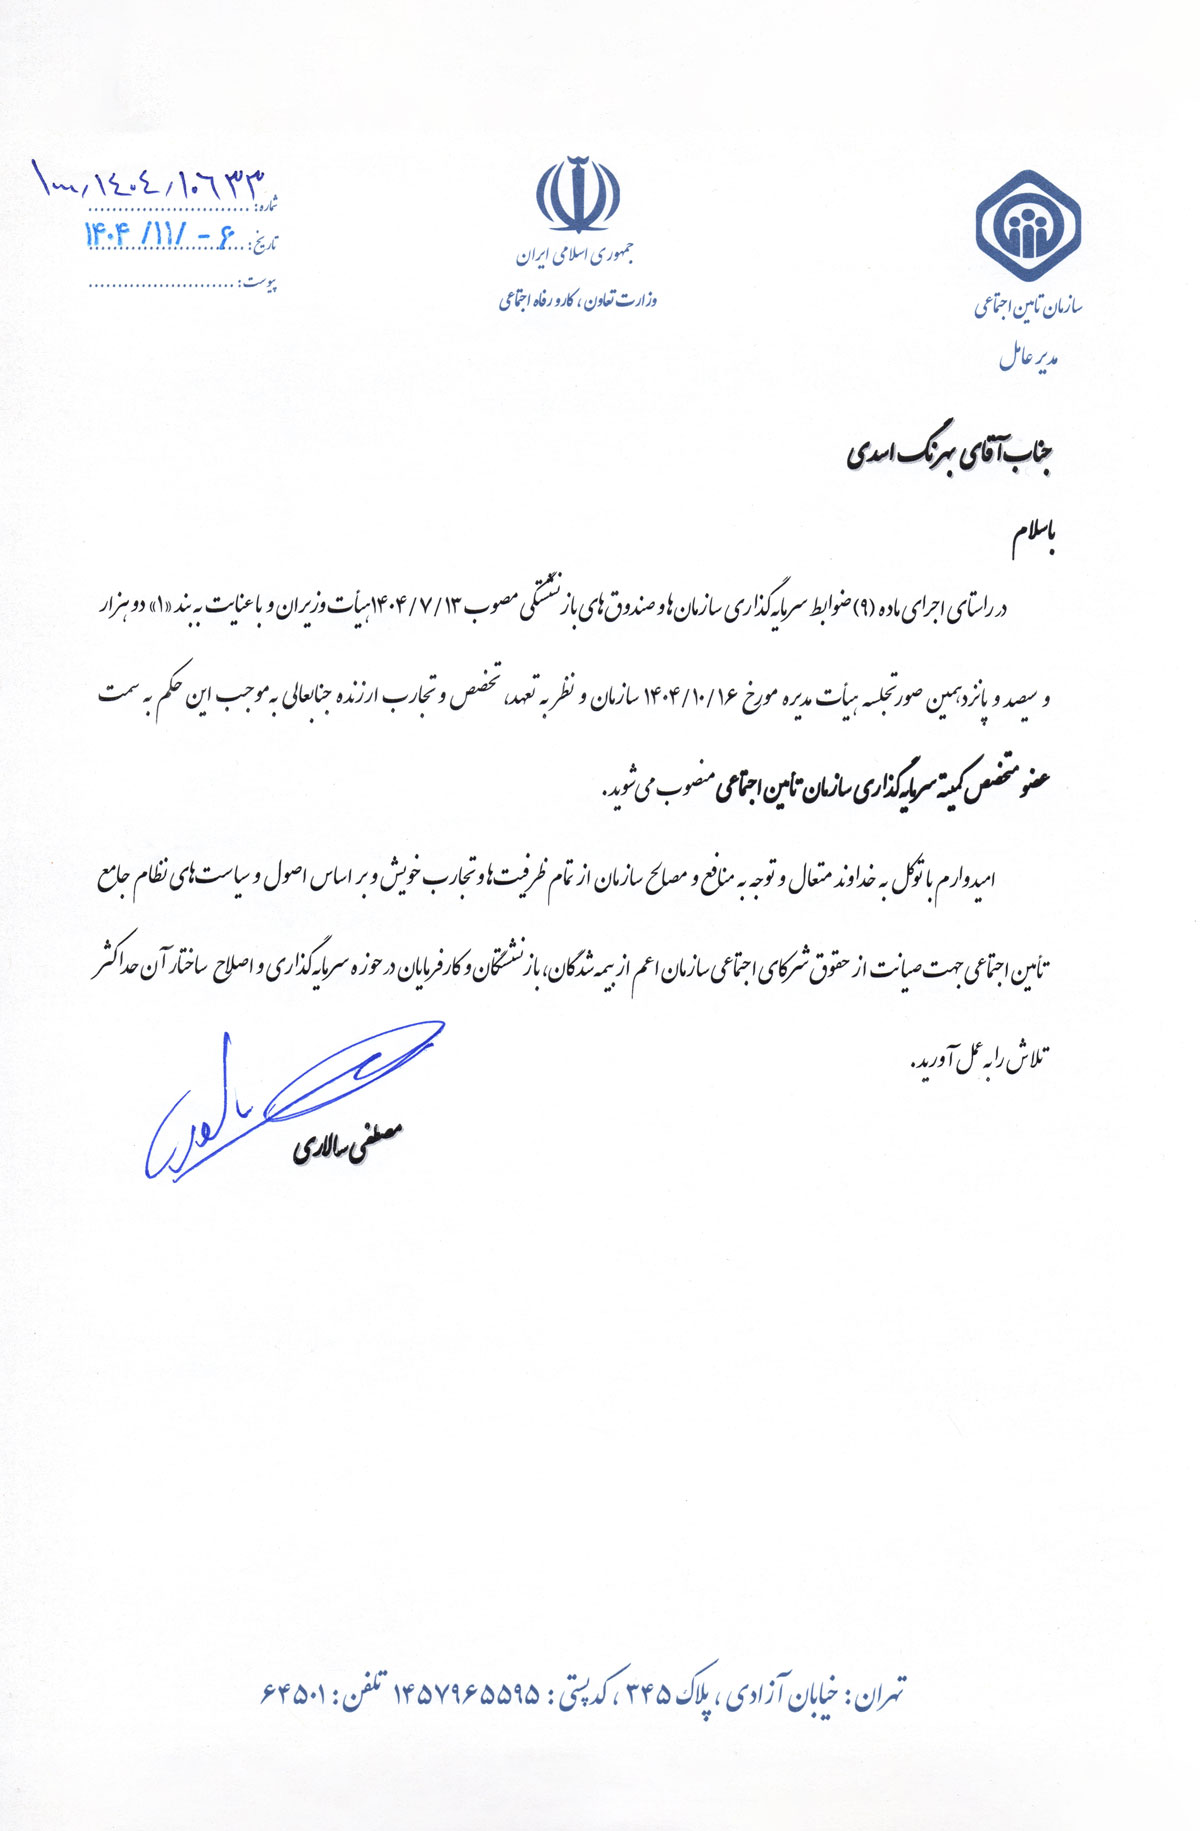 شماره: ۱۰۰۰/۱۴۰۴/۱۰۶۳۳
تاریخ: ۱۴۰۴/۱۱/-۶
پیوست:
جمهوری اسلامی ایران
وزارت تعاون، کار و رفاه اجتماعی
سازمان تأمین اجتماعی
مدیر عامل
جناب آقای بهرنگ اسدی
باسلام
در راستای اجرای ماده (۹) ضوابط سرمایه‌گذاری سازمان‌ها و صندوق‌های بازنشستگی مصوب ۱۴۰۴/۷/۱۳ هیأت وزیران و با عنایت به بند «۱» دو هزار
و سیصد و پانزدهمین صورتجلسه هیأت مدیره مورخ ۱۴۰۴/۱۰/۱۶ سازمان و نظر به تعهد، تخصص و تجارب ارزنده جنابعالی به‌موجب این حکم به سمت
عضو متخصص کمیته سرمایه‌گذاری سازمان تأمین اجتماعی منصوب می‌شوید.
امیدوارم با توکل به خداوند متعال و توجه به منافع و مصالح سازمان از تمام ظرفیت‌ها و تجارب خویش و بر اساس اصول و سیاست‌های نظام جامع
تأمین اجتماعی جهت صیانت از حقوق شرکای اجتماعی سازمان اعم از بیمه‌شدگان، بازنشستگان و کارفرمایان در حوزه سرمایه‌گذاری و اصلاح ساختار آن حداکثر
تلاش را به عمل آورید.
مصطفی سالاری
تهران: خیابان آزادی، پلاک ۳۴۵، کدپستی: ۱۴۵۷۹۶۵۵۹۵ تلفن: ۶۴۵۰۱